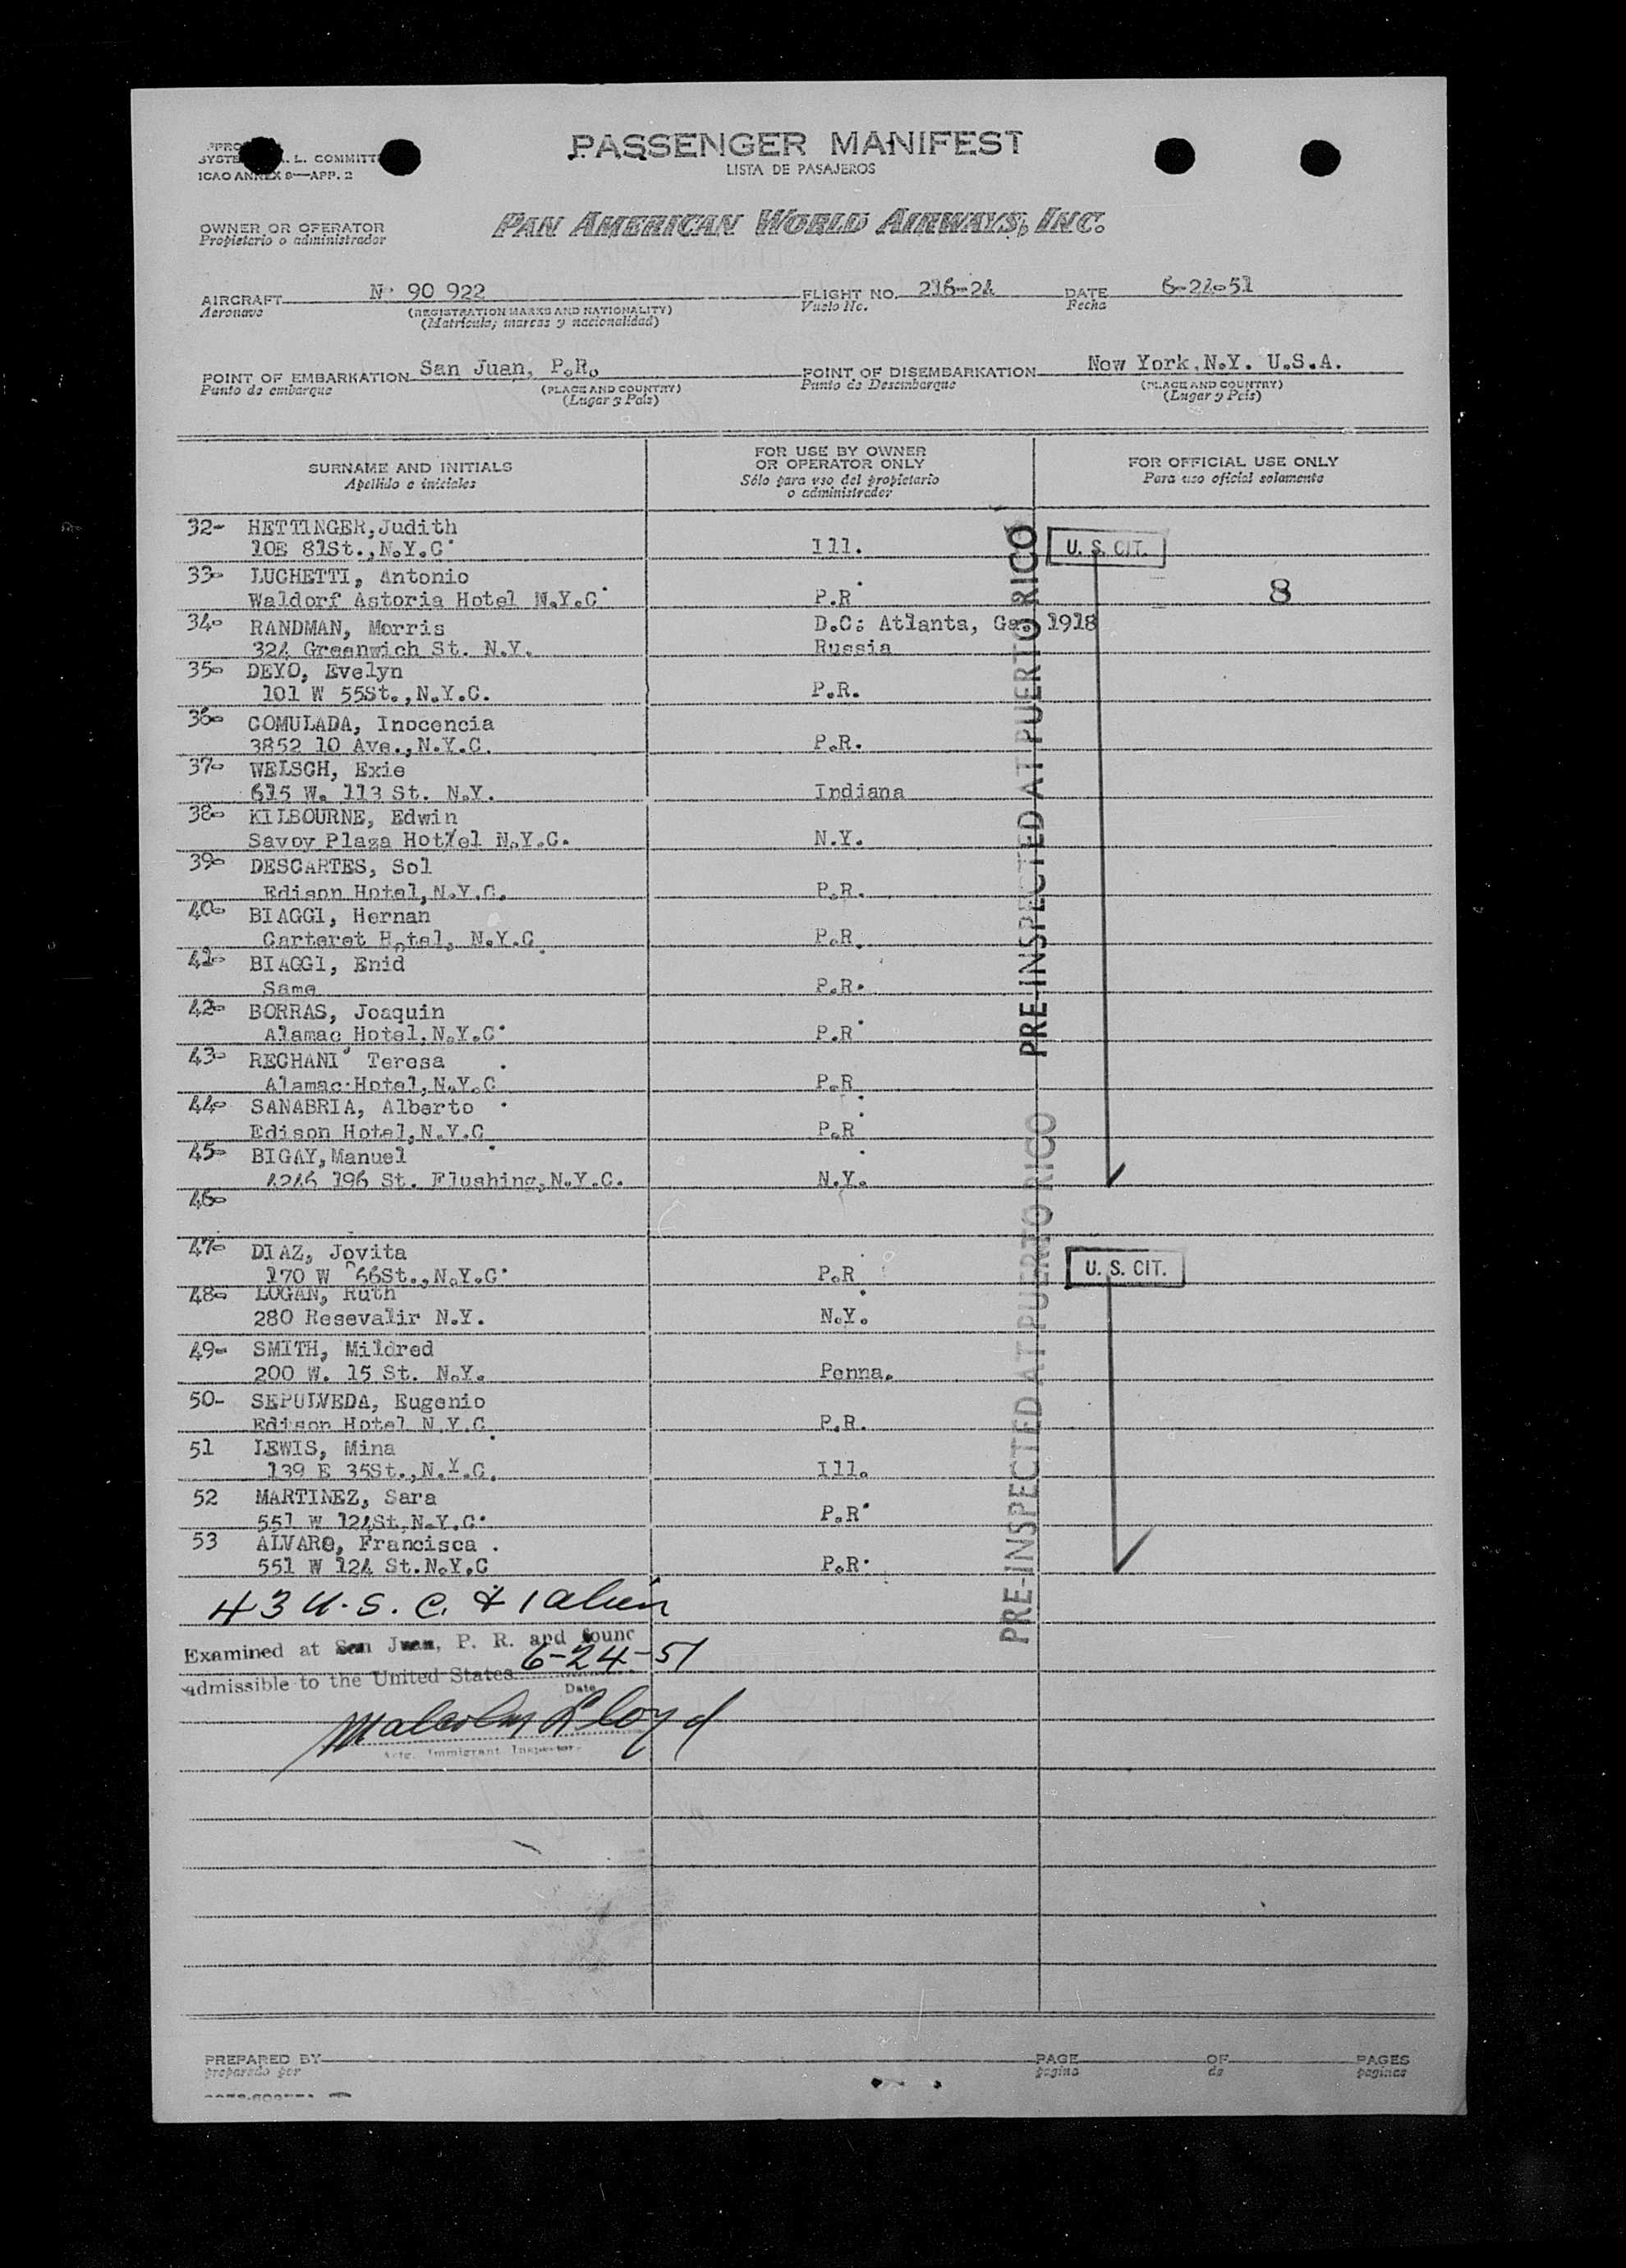 PASSENGER MANIFEST
LISTA DE PASAJEROS
L. COMMITT
ICAO ANNEX 9—APP. 2
OWNER OR OPERATOR
Propietario o administrador
PAN AMERICAN WORLD AIRWAYS, INC.
AIRCRAFT N 90 922 FLIGHT NO. 216-24 DATE 6-24-51
Aeronave (REGISTRATION MARKS AND NATIONALITY) Vuelo No. Fecha
(Matrícula, marcas y nacionalidad)
POINT OF EMBARKATION San Juan, P.R. POINT OF DISEMBARKATION New York, N.Y. U.S.A.
Punto de embarque (PLACE AND COUNTRY) Punto de Desembarque (PLACE AND COUNTRY)
(Lugar y País) (Lugar y País)
SURNAME AND INITIALS FOR USE BY OWNER OR OPERATOR ONLY FOR OFFICIAL USE ONLY
Apellido e iniciales Sólo para uso del propietario o administrador Para uso oficial solamente
32- HETTINGER, Judith
10E 81St., N.Y.C. Ill. U. S. CIT.
33- LUCHETTI, Antonio 8
Waldorf Astoria Hotel N.Y.C. P.R.
34- RANDMAN, Morris D.C: Atlanta, Ga. 1918
324 Greenwich St. N.Y. Russia
35- DEYO, Evelyn
101 W 55St., N.Y.C. P.R.
36- COMULADA, Inocencia
3852 10 Ave., N.Y.C. P.R.
37- WELSCH, Exie
615 W. 113 St. N.Y. Indiana
38- KILBOURNE, Edwin
Savoy Plaza Hot/el N.Y.C. N.Y.
39- DESCARTES, Sol
Edison Hotel, N.Y.C. P.R.
40- BIAGGI, Hernan
Carteret Hotel, N.Y.C. P.R.
41- BIAGGI, Enid
Same P.R.
42- BORRAS, Joaquin
Alamac Hotel, N.Y.C. P.R.
43- RECHANI, Teresa
Alamac Hotel, N.Y.C. P.R.
44- SANABRIA, Alberto
Edison Hotel, N.Y.C. P.R.
45- BIGAY, Manuel
4246 196 St. Flushing, N.Y.C. N.Y.
46-
47- DIAZ, Jovita
170 W 66St., N.Y.C. P.R. U. S. CIT.
48- LOGAN, Ruth
280 Resevalir N.Y. N.Y.
49- SMITH, Mildred
200 W. 15 St. N.Y. Penna.
50- SEPULVEDA, Eugenio
Edison Hotel N.Y.C. P.R.
51 LEWIS, Mina
139 E 35St., N.Y.C. Ill.
52 MARTINEZ, Sara
551 W 124St, N.Y.C. P.R.
53 ALVARO, Francisca
551 W 124 St. N.Y.C P.R.
PRE-INSPECTED AT PUERTO RICO
PRE-INSPECTED AT PUERTO RICO
43 U.S.C. & 1 alien
Examined at San Juan, P. R. and found
admissible to the United States 6-24-51
Date
Malcolm Lloyd
Actg. Immigrant Inspector
PREPARED BY PAGE OF PAGES
preparado por página de páginas